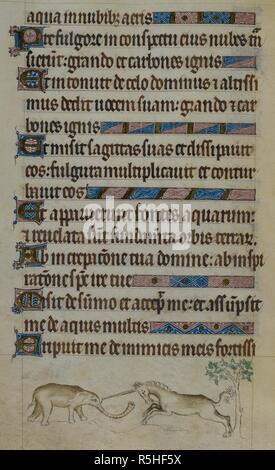 aqua in nubibus aeris
Pre fulgore in conspectu eius nubes tn̄
sierunt: grando et carbones ignis
Et intonuit de celo dominus & altissi
mus dedit uocem suam: grando & car
bones ignis
Et misit sagittas suas et dissipauit
eos: fulgura multiplicauit et contur
bauit eos
Et apparuerunt fontes aquarum:
& reuelata sūt fundamēta orbis terrar.
Ab increpatione tua domine: ab inspi
ratione sp̄c ire tue
Misit de sūmo et accep̄ me: et assūpsit
me de aquis multis
Eripuit me de inimicis meis fortissi
alamy
www.alamy.com - R5HF5X